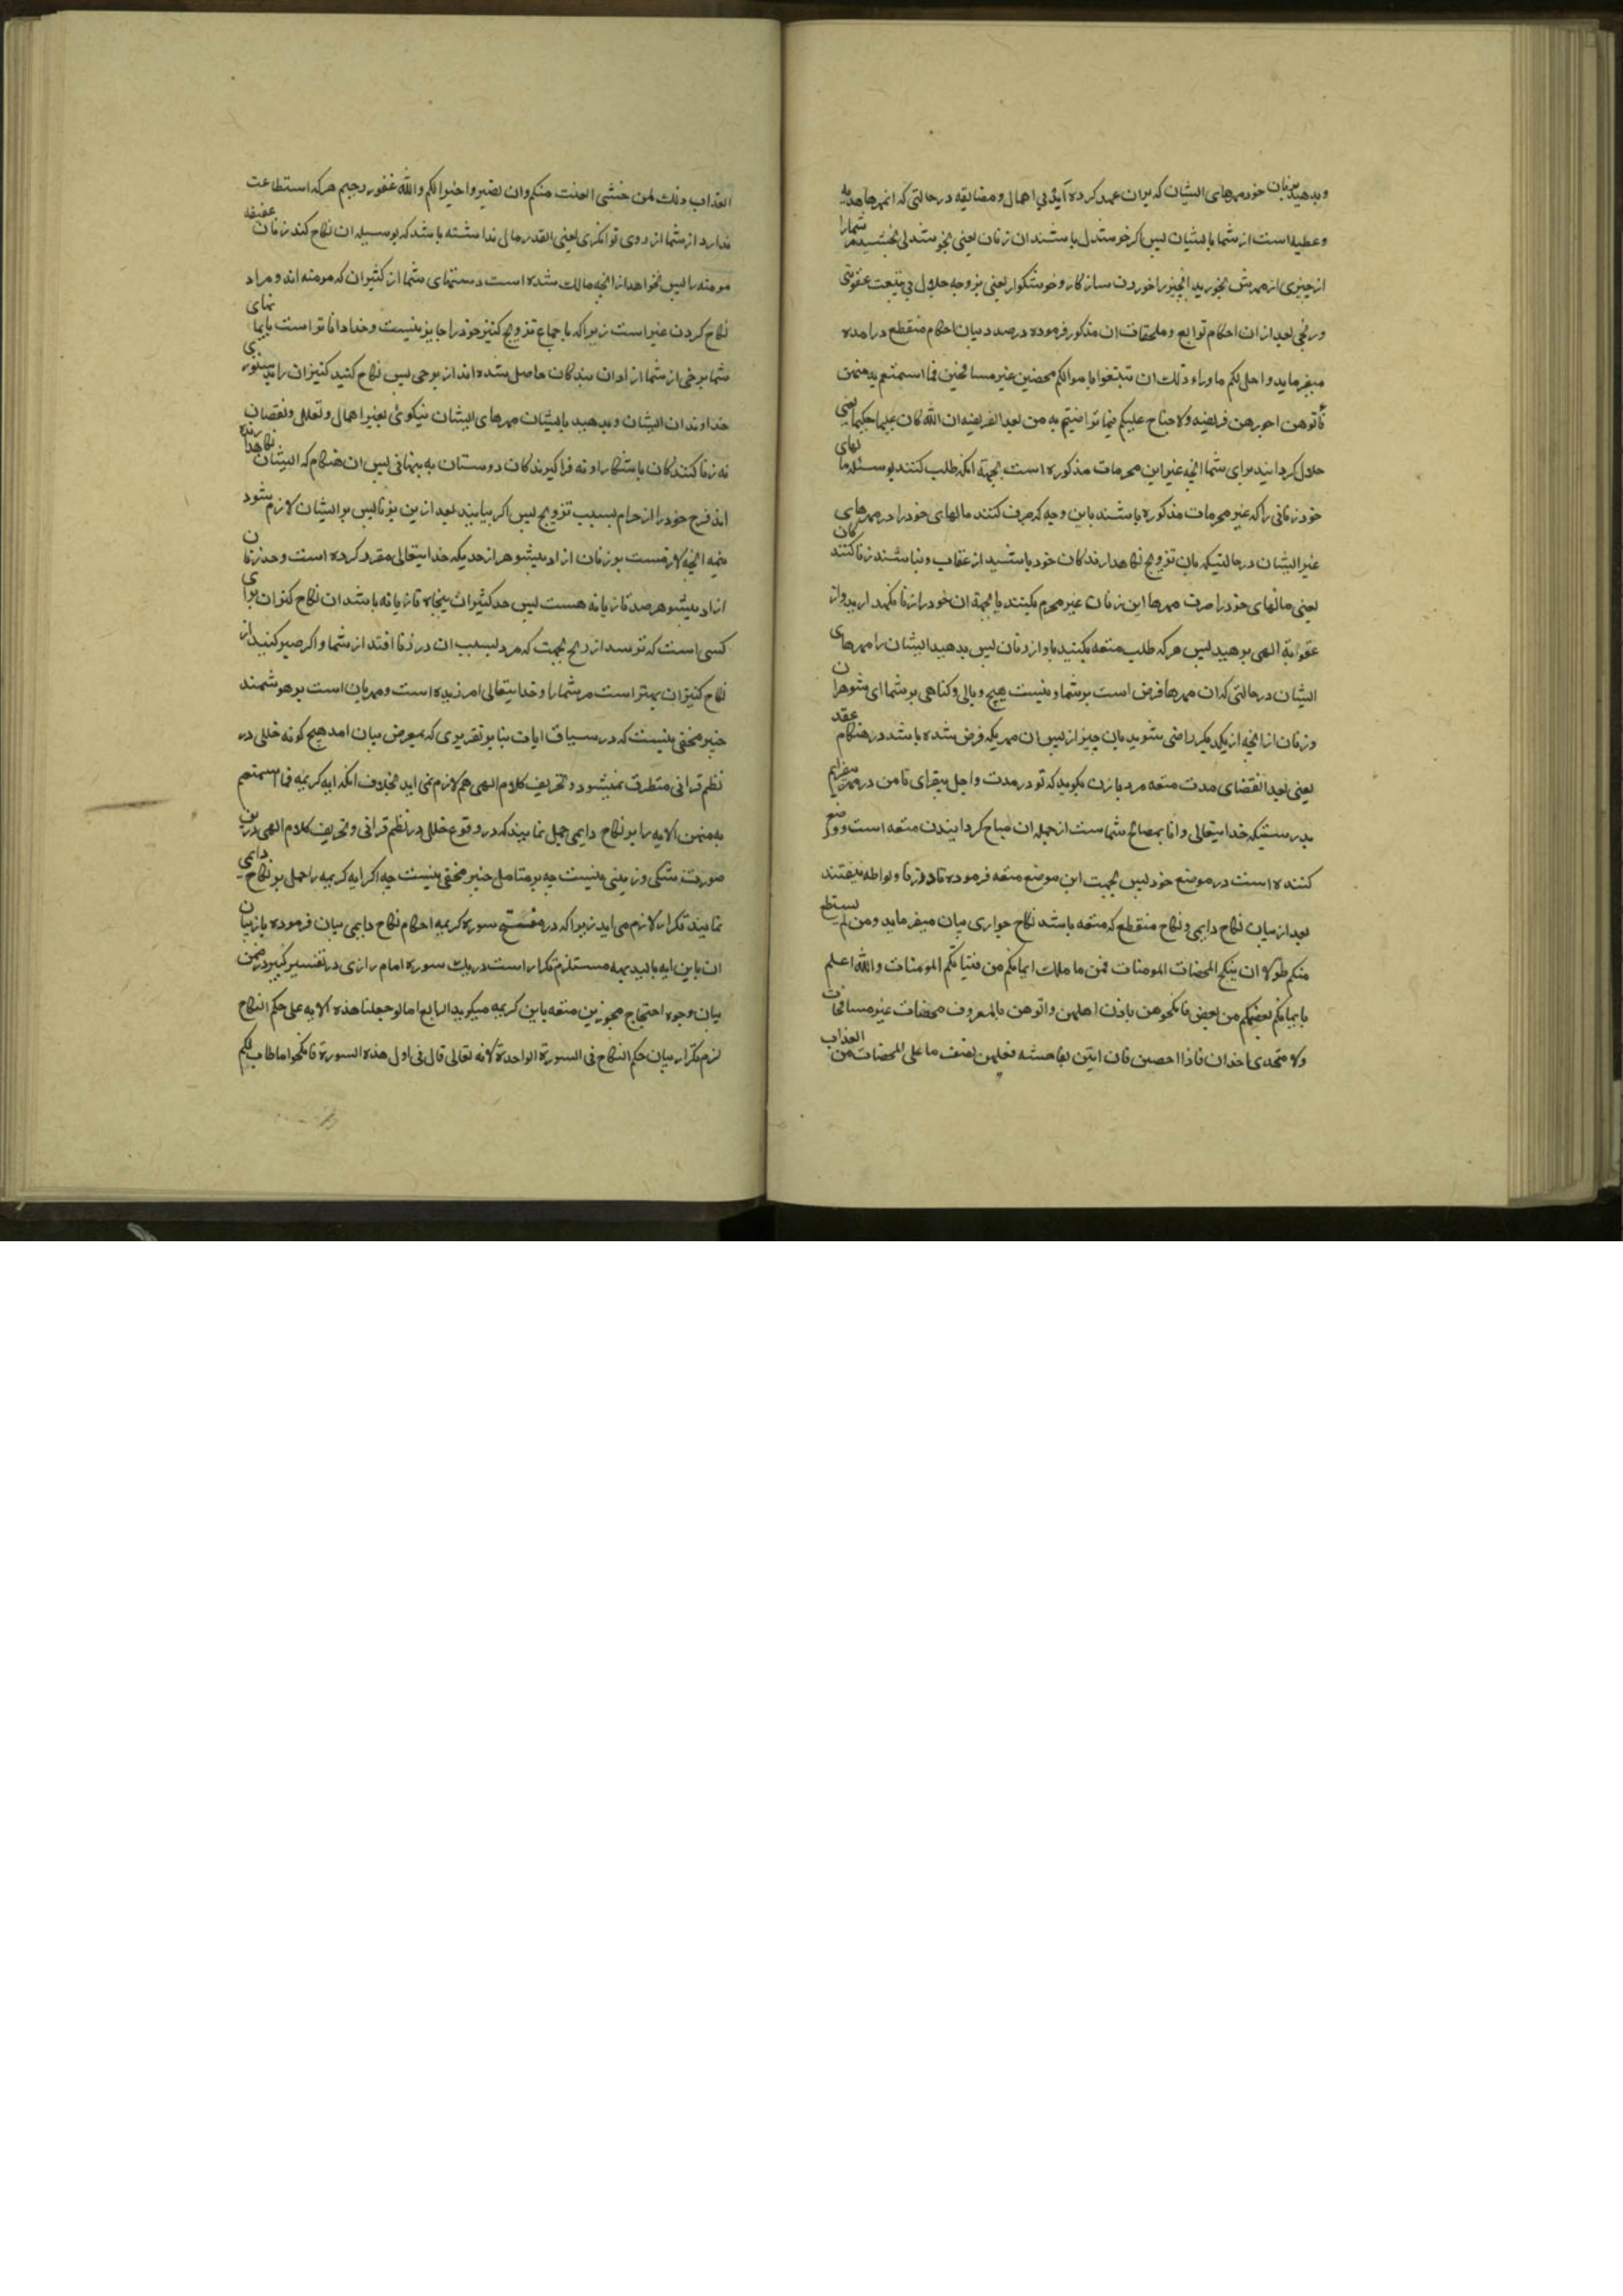 وبدهید بزنان خود مهرهای ایشان که بران عهد کرده آید بی اهمال و مضایقه در حالتی که انمهرها هدیه
وعطیه است از شما بایشان پس اکر خوشدل باشند ان زنان یعنی بخوشدلی بخشند مر شمارا
از چیزی از مهرش بخورید انچیز را خوردن سازکار و خوشکوار یعنی بر وجه حلال بی تبعت عقوبتی
ورنجی بعد از ان احکام توابع و ملحقات ان مذکور فرموده درصدد بیان احکام منقطع در امده
میفرماید واحل لکم ما وراء ذلک ان تبتغوا باموالکم محصنین غیر مسافحین فما استمتعتم به منهن
فاتوهن اجورهن فریضه ولا جناح علیکم فیما تراضیتم به من بعد الفریضه ان الله کان علیما حکیما یعنی
حلال کردانید برای شما انچه غیر این محرمات مذکوره است بجهة انکه طلب کنند بوسیله مالهای
خود زنانی را که غیر محرمات مذکوره باشند باین وجه که صرف کنند مالهای خود را در مهرهای
غیر ایشان در حالتیکه بان تزویج نکاهدارندکان خود باشید از عقاب و نباشند زنا کنندکان
یعنی مالهای خود را صرف مهرها این زنان غیر محرم بکنند بانجهة ان خود را از زنا نکهدارید و از
عقوبة الهی برهید پس هر که طلب متعه بکنید باو از زنان پس بدهید ایشان را مهرهای
ایشان در حالتی که ان مهرها فرض است بر شما و نیست هیچ وبالی و کناهی بر شما ای شوهران
وزنان از انچه از یکدیکر راضی شوید بان چیز از پس ان مهریکه فرض شده باشد در هنکام عقد
یعنی بعد انقضای مدت متعه مرد بازن بکوید که تو در مدت واجل بیفزای تا من در مهر بیفزایم
بدرستیکه خدایتعالی دانا بمصالح شماست از جمله ان مباح کردانیدن متعه است و وضع
کننده است در موضع خود پس بجهت این موضع متعه فرموده تا در زنا و لواطه نیفتند
بعد از بیان نکاح دایمی و نکاح منقطع که متعه باشد نکاح جواری بیان میفرماید ومن لم یستطع
منکم طولا ان ینکح المحصنات المومنات فمن ما ملکت ایمانکم من فتیاتکم المومنات والله اعلم
بایمانکم بعضکم من بعض فانکحوهن باذن اهلهن واتوهن بالمعروف محصنات غیر مسافحات
ولا متخذی اخدان فاذا احصن فان اتین بفاحشه فعلیهن نصف ما علی المحصنات من العذاب
العذاب ذلک لمن خشی العنت منکم وان تصبروا خیرا لکم والله غفور رحیم هر که استطاعت
ندارد از شما از روی توانکری یعنی انقدر مال نداشته باشد که بوسیله ان نکاح کند زنان عفیفه
مومنه را پس بخواهد از انچه مالک شده است دستهای شما از کنیزان که مومنه اند و مراد
نکاح کردن غیر است زیرا که باجماع تزویج کنیز خود را جایز نیست و خدا داناتر است بایمانهای
شما برخی از شما ازادان بندکان حاصل شده اند از برخی پس نکاح کنید کنیزان را بدستوری
خداوندان ایشان و بدهید بایشان مهرهای ایشان نیکوئی بغیر اهمال و تعلل و نقصان
نه زنا کنندکان باشکارا و نه فرا کیرندکان دوستان به پنهانی پس ان هنکام که ایشان نکاهدارنده
اند فرج خود را از حرام بسبب تزویج پس اکر بیایند بعد ازین بزنا پس بر ایشان لازم شود
نیمه انچه لازمست بر زنان ازاد بیشوهر از حدیکه خدایتعالی مقرر کرده است و حد زنان
ازاد بیشوهر صد تازیانه هست پس حد کنیزان پنجاه تازیانه باشد ان نکاح کنیزان برای
کسی است که ترسد از رنج بجهت که مرد بسبب ان در زنا افتد از شما واکر صبر کنید از
نکاح کنیزان بهتر است مر شما را و خدایتعالی امرزیده است و مهربان است بر هوشمند
خبیر مخفی نیست که در سیاق ایات بنا بر تقریری که بمعرض بیان امد هیچ کونه خللی در
نظم قرانی متطرق نمیشود و تحریف کلام الهی هم لازم نمی اید بخلاف انکه ایه کریمه فما استمتعتم
به منهن الایه را بر نکاح دایمی حمل نمایند که در وقوع خلل در نظم قرانی و تحریف کلام الهی درین
صورت شکی و ریبی نیست چه بر متامل خبیر مخفی نیست چه اکر ایه کریمه را حمل بر نکاح دایمی
نمایند تکرار لازم می اید زیرا که در مفتتح سوره کریمه احکام نکاح دایمی بیان فرموده باز بیان
ان باین ایه بالبدیهه مستلزم تکرار است در یک سوره امام رازی در تفسیر کبیر در ضمن
بیان وجوه احتجاج مجوزین متعه باین کریمه میکوید الرابع اما لو جعلنا هذه الایه علی حکم النکاح
لزم تکرار بیان حکم النکاح فی السورة الواحدة لانه تعالی قال فی اول هذه السورة فانکحوا ما طاب لکم